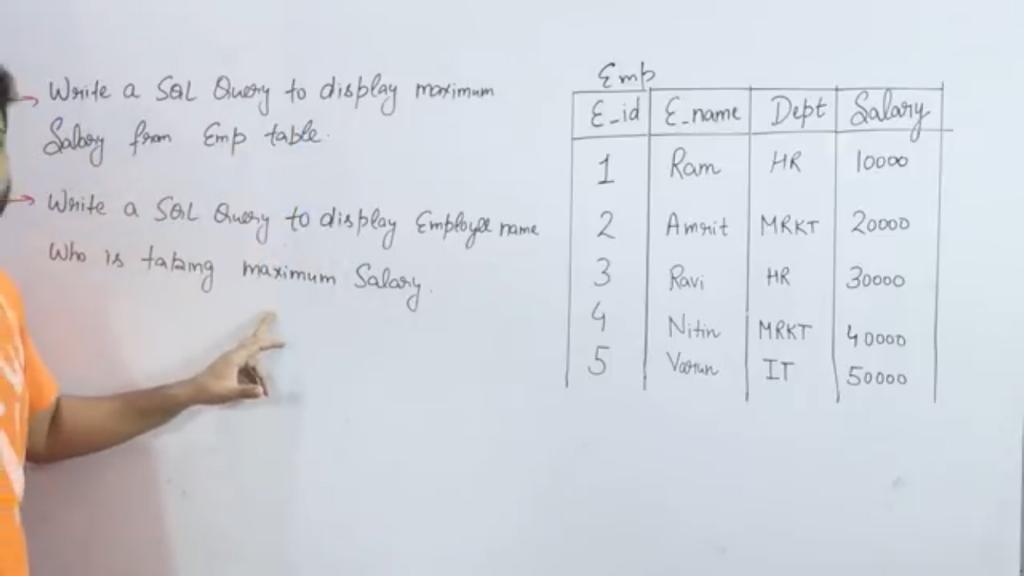 Write a SQL Query to display maximum
Salary from Emp table.
Write a SQL Query to display Employee name
Who is taking maximum Salary.
Emp
E_id E_name Dept Salary
1 Ram HR 10000
2 Amrit MRKT 20000
3 Ravi HR 30000
4 Nitin MRKT 40000
5 Varun IT 50000